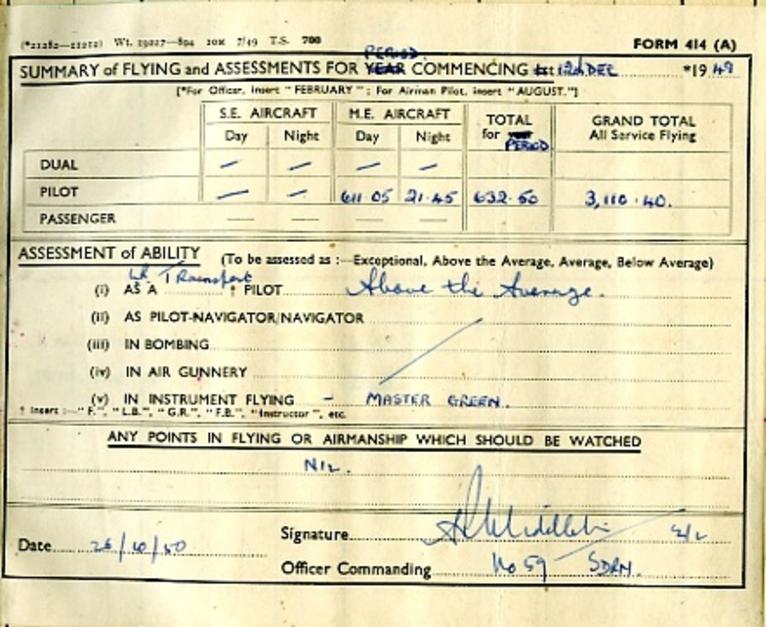 (*21282—21212) Wt. 19227—894 20M 7/49 T.S. 700
FORM 414 (A)
PERIOD.
SUMMARY of FLYING and ASSESSMENTS FOR YEAR COMMENCING 1st 12th DEC *19 49
[*For Officer, insert "FEBRUARY"; For Airman Pilot, insert "AUGUST."]
S.E. AIRCRAFT M.E. AIRCRAFT TOTAL for year PERIOD GRAND TOTAL All Service Flying
Day Night Day Night
DUAL — — — —
PILOT — — 611.05 21.45 632.50 3,110.40.
PASSENGER — — — —
ASSESSMENT of ABILITY (To be assessed as :—Exceptional, Above the Average, Average, Below Average)
(i) AS A LR. Transport † PILOT Above the Average.
(ii) AS PILOT-NAVIGATOR/NAVIGATOR
(iii) IN BOMBING
(iv) IN AIR GUNNERY
(v) IN INSTRUMENT FLYING - MASTER GREEN.
† Insert :—"F.", "L.B.", "G.R.", "F.B.", "Instructor", etc.
ANY POINTS IN FLYING OR AIRMANSHIP WHICH SHOULD BE WATCHED
NIL.
Signature S/L
Date 26/10/50
Officer Commanding No 59 SDRN.